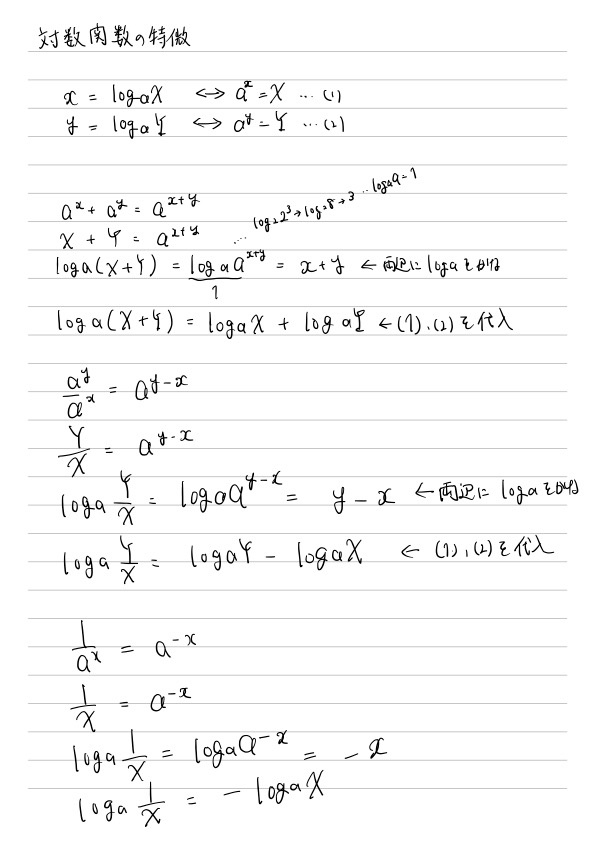 対数関数の特徴
x = logaX ↔ a^x = X … (1)
y = logaY ↔ a^y = Y … (2)
a^x + a^y = a^{x+y}
X + Y = a^{x+y} … log₂2³→log₂8→3 … logaa=1
loga(X+Y) = loga a^{x+y} = x+y ← 両辺にlogaをかける
1
loga(X+Y) = logaX + logaY ← (1),(2)を代入
a^y/a^x = a^{y-x}
Y/X = a^{y-x}
loga Y/X = loga a^{y-x} = y - x ← 両辺にlogaをかける
loga Y/X = logaY - logaX ← (1),(2)を代入
1/a^x = a^{-x}
1/X = a^{-x}
loga 1/X = loga a^{-x} = -x
loga 1/X = - logaX